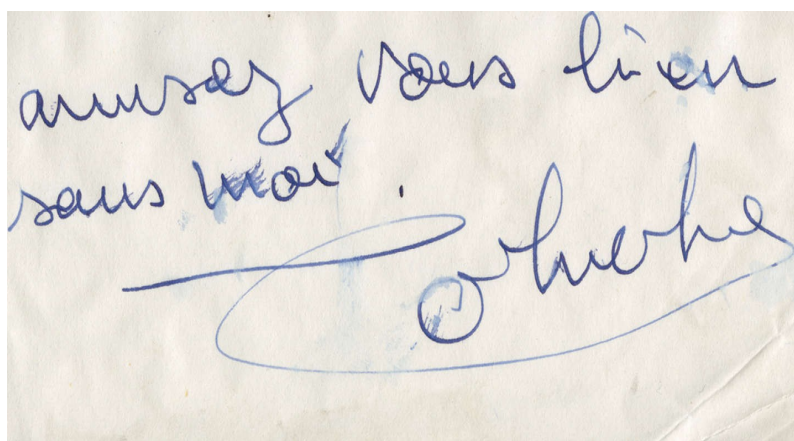 amusez vous bien
sans moi.
Coluche